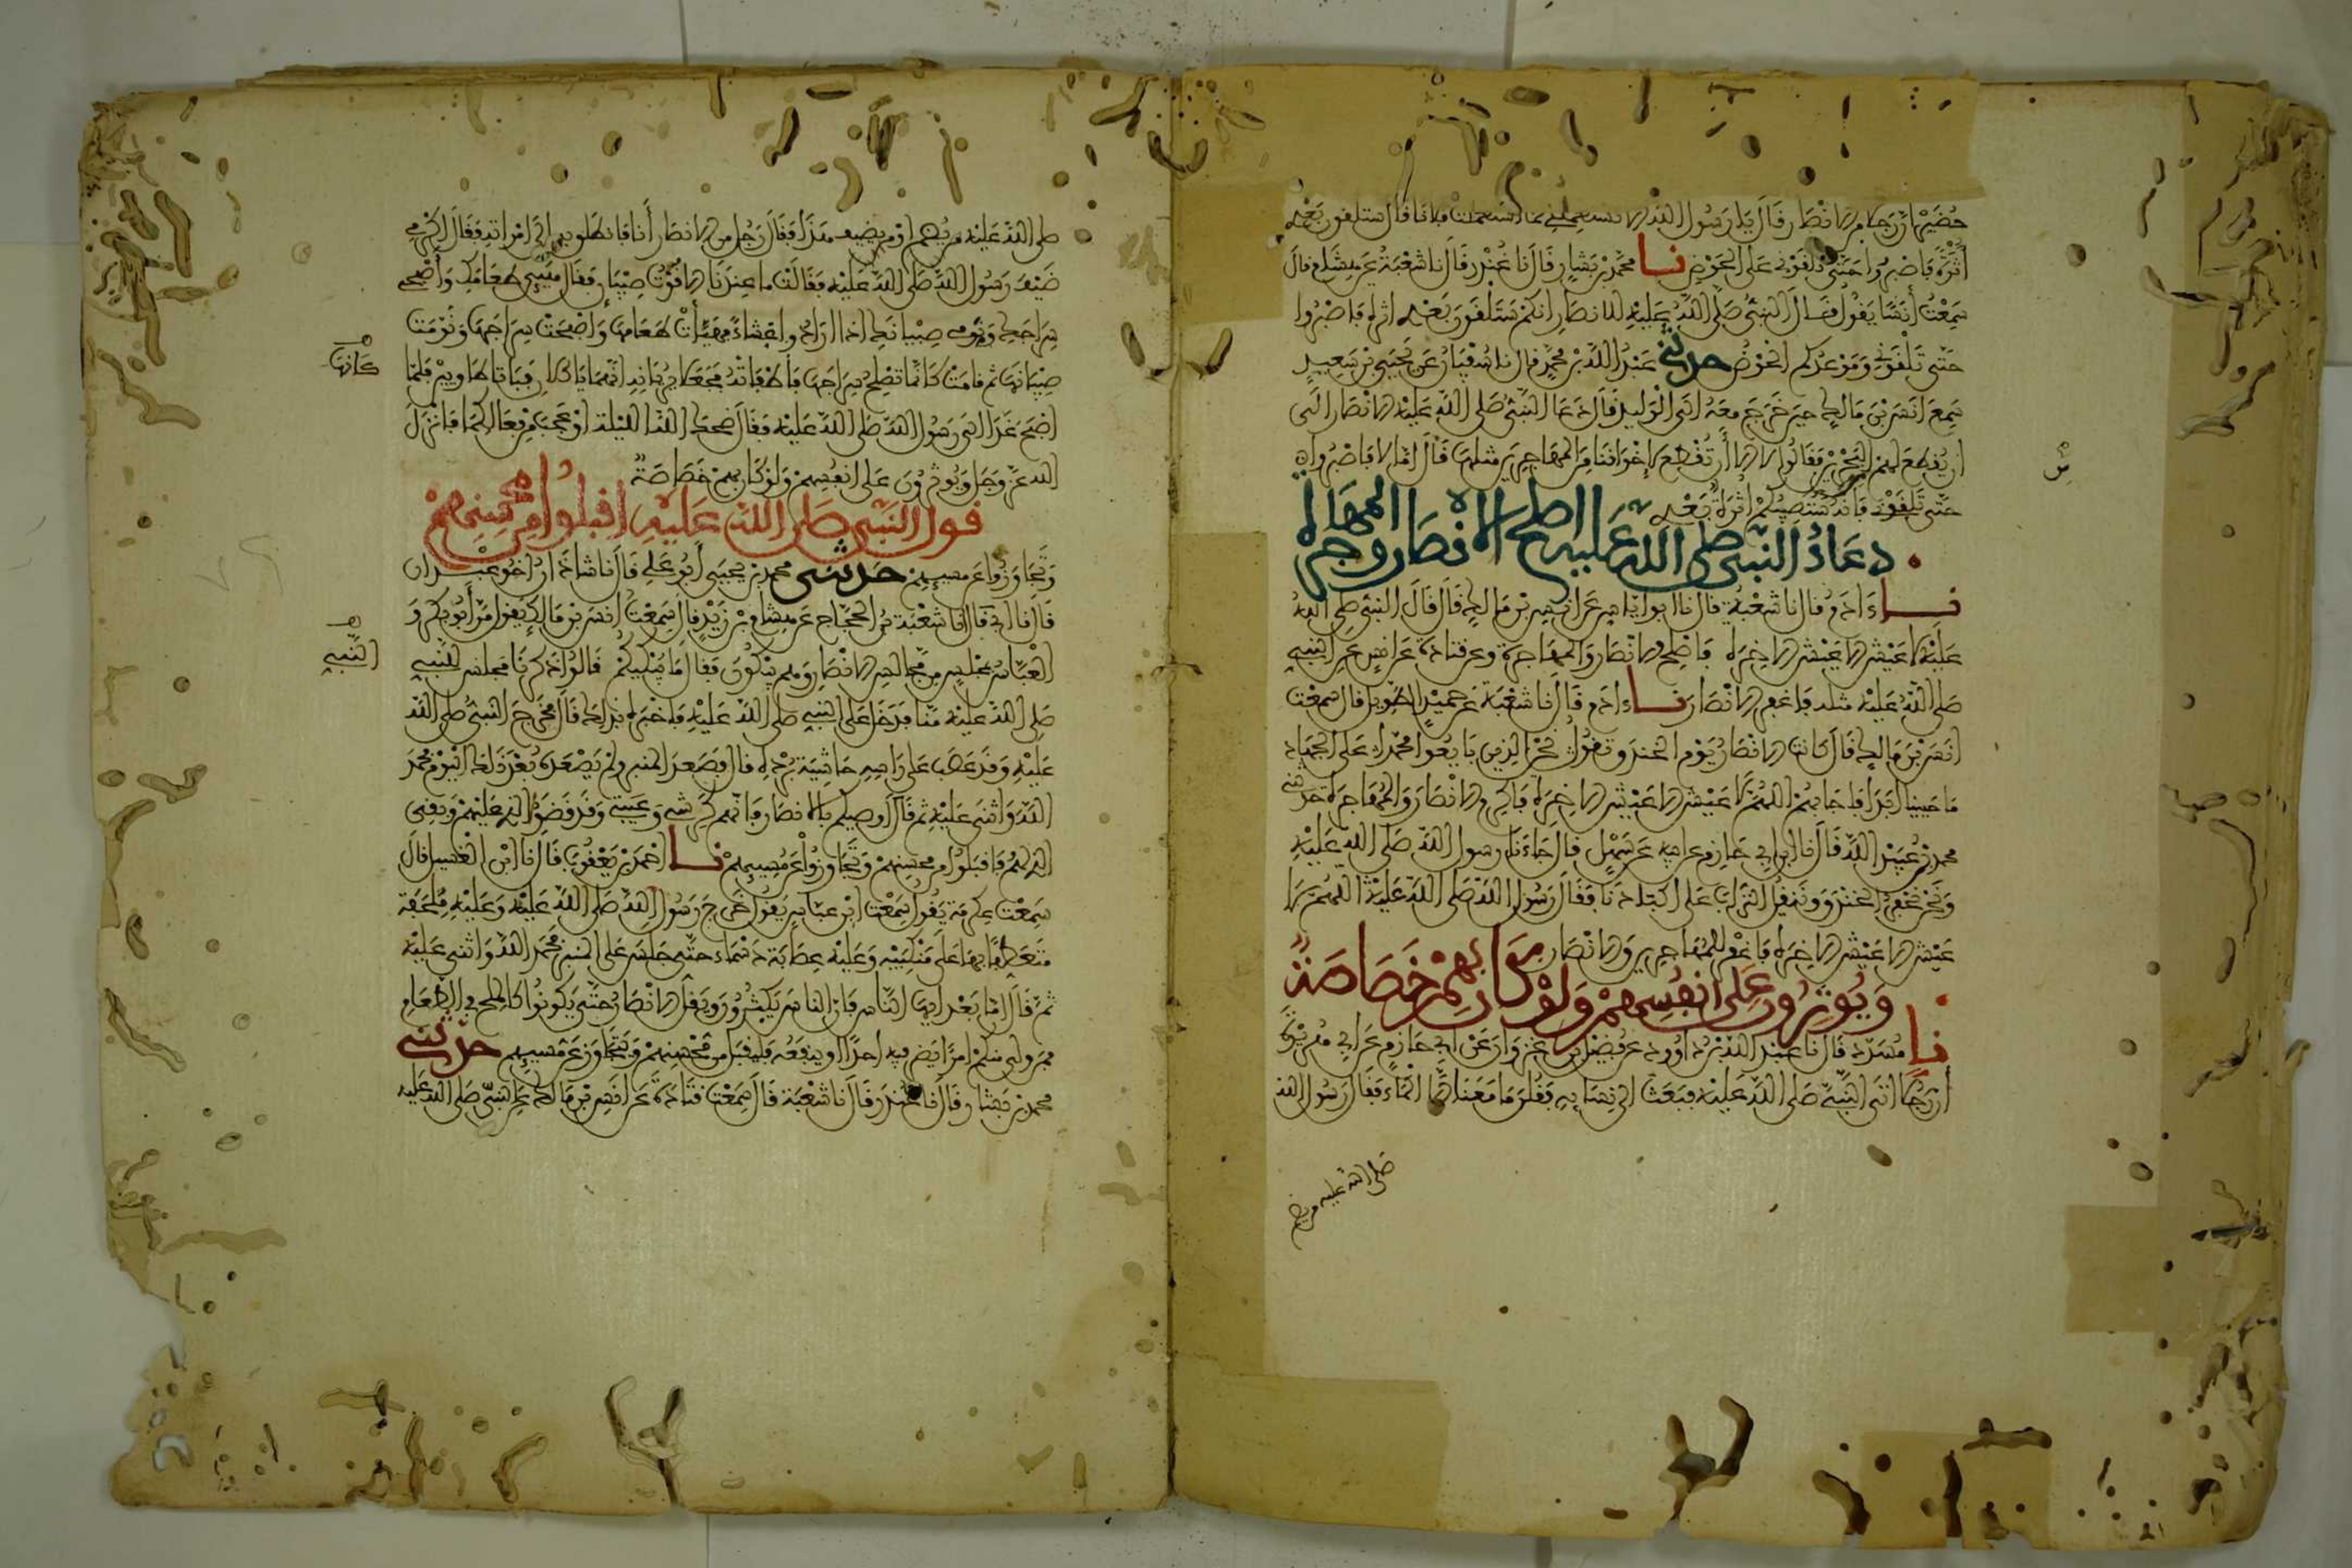 حُضَيْرٍ أن رجلا من الانصار قال يا رسول الله الا تستعملني كما استعملت فلانا قال ستلقون بعدي
أثرة فاصبروا حتى تلقوني على الحوض نا محمد بن بشار قال نا غندر قال نا شعبة عن هشام قال
سمعت أنسا يقول قال النبي صلى الله عليه للانصار انكم ستلقون بعدي اثرة فاصبروا
حتى تلقوني وموعدكم الحوض حدثني عبد الله بن محمد قال نا سفيان عن يحيى بن سعيد
سمع أنس بن مالك حين خرج معه الى الوليد قال دعا النبي صلى الله عليه الانصار الى
ان يقطع لهم البحرين فقالوا لا الا أن تقطع لإخواننا من المهاجرين مثلها قال امّا لا فاصبروا
حتى تلقوني فانه ستصيبكم اثرة بعدي
دعاء النبي صلى الله عليه اصلح الانصار والمهاجرة
نا ءادم قال نا شعبة قال نا ابو اياس عن انس بن مالك قال قال النبي صلى الله
عليه لا عيش الا عيش الاخره فاصلح الانصار والمهاجرة وعن قتادة عن انس عن النبي
صلى الله عليه مثله فاغفر للانصار نا ءادم قال نا شعبة عن حميد الطويل قال سمعت
انس بن مالك قال كانت الانصار يوم الخندق تقول نحن الذين بايعوا محمدا على الجهاد
ما حيينا ابدا فاجابهم اللهم لا عيش الا عيش الاخره فاكرم الانصار والمهاجرة حدثني
محمد بن عبيد الله قال نا ابن ابي حازم عن ابيه عن سهل قال جاءنا رسول الله صلى الله عليه
ونحن نحفر الخندق وننقل التراب على اكتادنا فقال رسول الله صلى الله عليه اللهم لا
عيش الا عيش الاخره فاغفر للمهاجرين والانصار
ويوثرون على انفسهم ولو كان بهم خصاصة
نا مسدد قال نا عبد الله بن داوود عن فضيل بن غزوان عن ابي حازم عن ابي هريرة
أن رجلا اتى النبي صلى الله عليه فبعث الى نسايه فقلن ما معنا الا الماء فقال رسول الله
صلى الله عليه من يضم
صلى الله عليه من يضم او من يضيف هذا فقال رجل من الانصار أنا فانطلق به الى امراته فقال اكرمي
ضيف رسول الله صلى الله عليه فقالت ما عندنا الا قوت صبيان فقال هيئي طعامك وأصبحي
سراجك ونومي صبيانك اذا ارادوا عشاء فهيأت طعامها وأصبحت سراجها ونومت
صبيانها ثم قامت كانها تصلح سراجها فأطفأته فجعلا يريانه انهما ياكلان فباتا طاويين فلما
كأنها
اصبح غدا الى رسول الله صلى الله عليه فقال ضحك الله الليلة أو عجب من فعالكما فأنزل
الله عز وجل ويوثرون على انفسهم ولو كان بهم خصاصة
قول النبي صلى الله عليه اقبلوا من محسنهم
وتجاوزوا عن مسيئهم حدثني محمد بن يحيى أبو علي قال نا شاذان أخو عبدان
قال نا ابي قال انا شعبة بن الحجاج عن هشام بن زيد قال سمعت انس بن مالك يقول مر أبو بكر و
العباس بمجلس من مجالس الانصار وهم يبكون فقال ما يبكيكم قالوا ذكرنا مجلس النبي
النبي
صلى الله عليه منا فدخل على النبي صلى الله عليه فاخبره بذلك قال فخرج النبي صلى الله
عليه وقد عصب على راسه حاشية برد قال فصعد المنبر ولم يصعده بعد ذلك اليوم فحمد
الله واثنى عليه ثم قال اوصيكم بالانصار فانهم كرشي وعيبتي وقد قضوا الذي عليهم وبقي
الذي لهم فاقبلوا من محسنهم وتجاوزوا عن مسيئهم نا احمد بن يعقوب قال نا ابن الغسيل قال
سمعت عكرمة يقول سمعت ابن عباس يقول خرج رسول الله صلى الله عليه وعليه ملحفة
متعطفا بها على منكبيه وعليه عصابة دسماء حتى جلس على المنبر فحمد الله واثنى عليه
ثم قال امّا بعد ايها الناس فان الناس يكثرون ويقل الانصار حتى يكونوا كالملح في الطعام
فمن ولي منكم امرا يضر فيه احدا او ينفعه فليقبل من محسنهم ويتجاوز عن مسيئهم حدثني
محمد بن بشار قال نا غندر قال نا شعبة قال سمعت قتادة عن انس بن مالك عن النبي صلى الله عليه